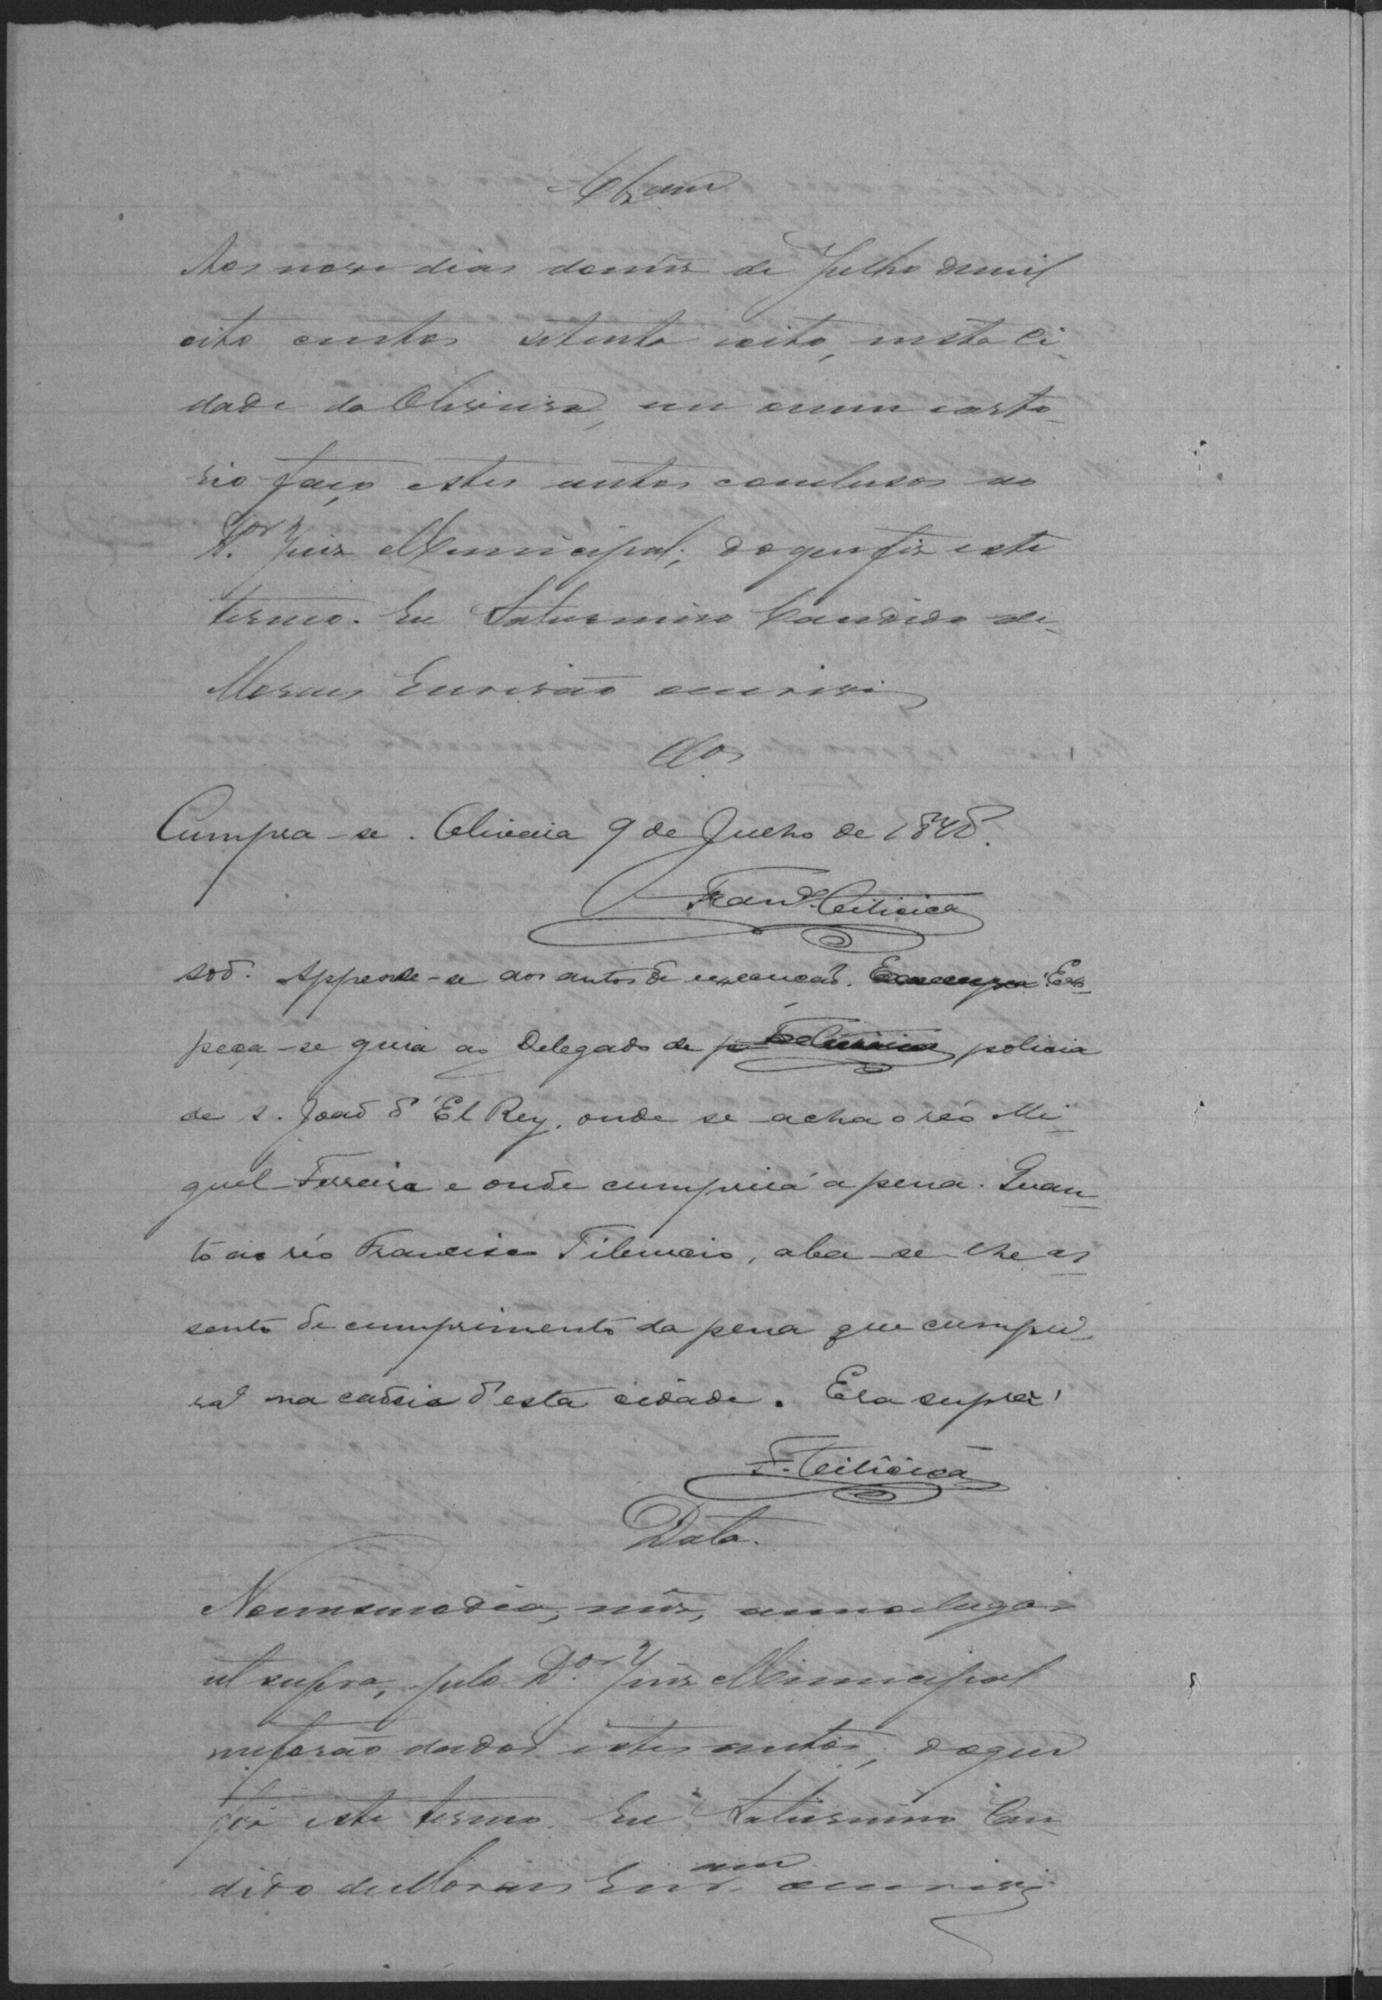 Aos nove dias do mez de Julho de mil
oito centos setenta e oito, nesta Ci-
dade da Oliveira, em o meu carto-
rio faço estes autos conclusos ao
D.or Juiz Municipal; do que fiz este
termo. Eu Saturnino Candido de
Moraes Escrivão o escrevi
Clos
Cumpra-se. Oliveira 9 de Julho de 1878.
Fran.co
Appense-se aos autos de execucaõ. Ex-
peça-se guia ao Delegado de policia
de S. Joaõ d'El Rey, onde se acha o réo Mi-
guel Ferreira e onde cumprirá a pena. Quan-
to ao réo Francisco Tiburcio, abra-se lhe as
sento de cumprimento da pena que cumpri-
rá na cadeia d'esta cidade. Era supra
F.
Data.
No mesmo dia, mez, anno e lugar
ut supra, pelo D.or Juiz Municipal
me forão dados estes autos; do que
fiz este termo. Eu Saturnino Can-
dido de Moraes Escr.am o escrevi